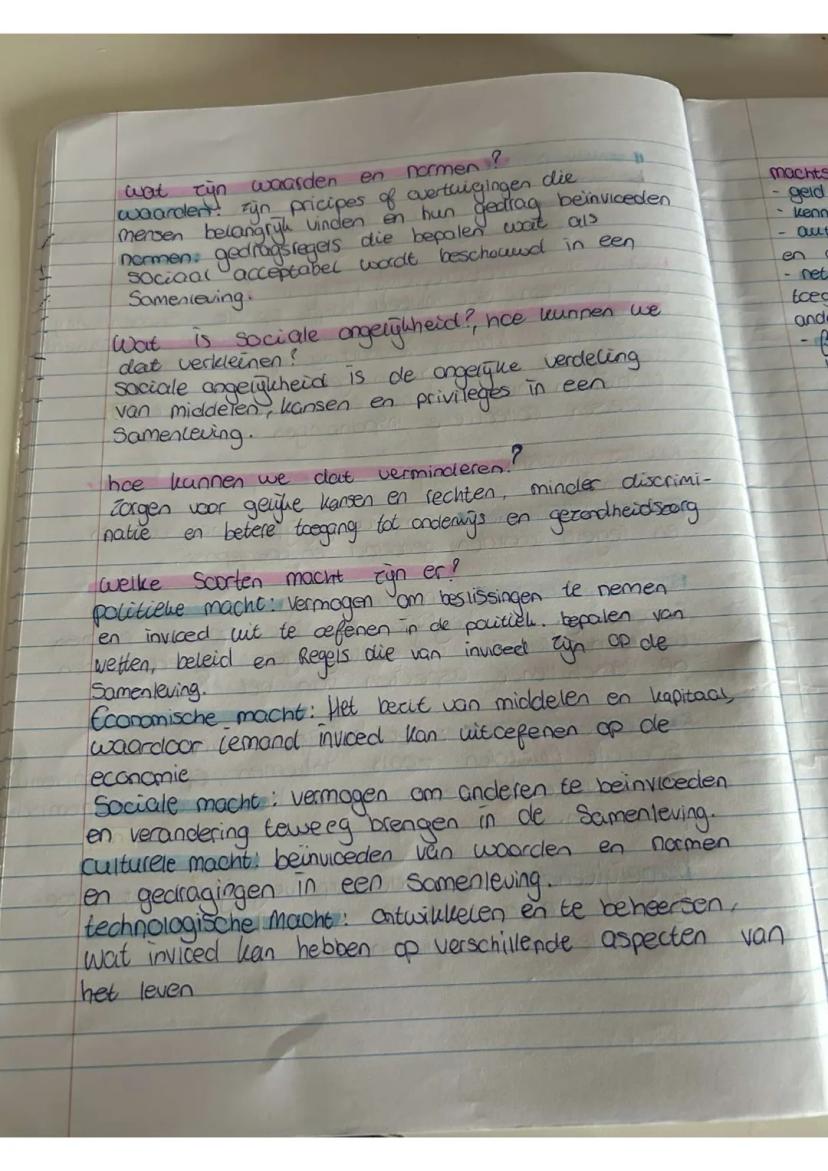 wat zijn waarden en normen?
waarden: zijn pricipes of overtuigingen die
mensen belangrijk vinden en hun gedrag beïnvloeden
normen: gedragsregels die bepalen wat als
sociaal acceptabel wordt beschouwd in een
Samenleving.
Wat is sociale ongelijkheid?, hoe kunnen we
dat verkleinen?
sociale ongelijkheid is de ongelijke verdeling
van middelen, kansen en privileges in een
Samenleving.
hoe kunnen we dat verminderen?
Zorgen voor gelijke kansen en rechten, minder discrimi-
natie en betere toegang tot onderwijs en gezondheidszorg
welke Soorten macht zijn er?
politieke macht: vermogen om beslissingen te nemen
en invloed uit te oefenen in de politiek. bepalen van
wetten, beleid en Regels die van invloed zijn op de
Samenleving.
Economische macht: Het bezit van middelen en kapitaal,
waardoor iemand invloed kan uitoefenen op de
economie
Sociale macht: vermogen om anderen te beïnvloeden
en verandering teweeg brengen in de Samenleving.
culturele macht: beïnvloeden van waarden en normen
en gedragingen in een Samenleving.
technologische Macht: ontwikkelen en te beheersen,
wat invloed kan hebben op verschillende aspecten van
het leven
machts
- geld
- kenn
- aut
en
- net
toeg
ande